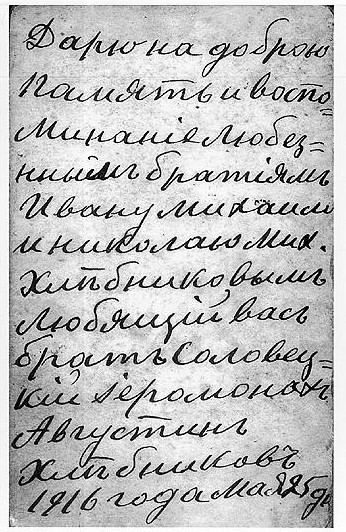 Дарю на доброю
память и воспо=
минаніе любез=
нныимъ братіямъ
Ивану Михаил
и николаю Мих.
Хлѣбниковымъ
любящій васъ
братъ Соловец=
кій іеромонахъ
Августинъ
Хлѣбниковъ
1916 года мая 25 дн